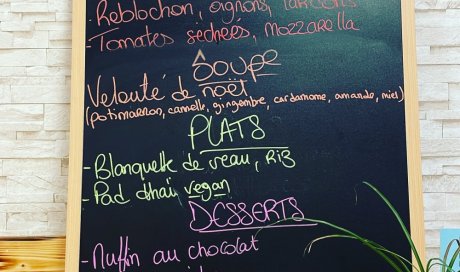 Reblochon, oignons, lardons
- Tomates sechées, mozzarella
Ôoupe
Velouté de noël
(potimarron, cannelle, gingembre, cardamome, amande, miel)
PLATS
- Blanquette de veau, Riz
- Pad thaï vegan
DESSERTS
- Muffin au chocolat